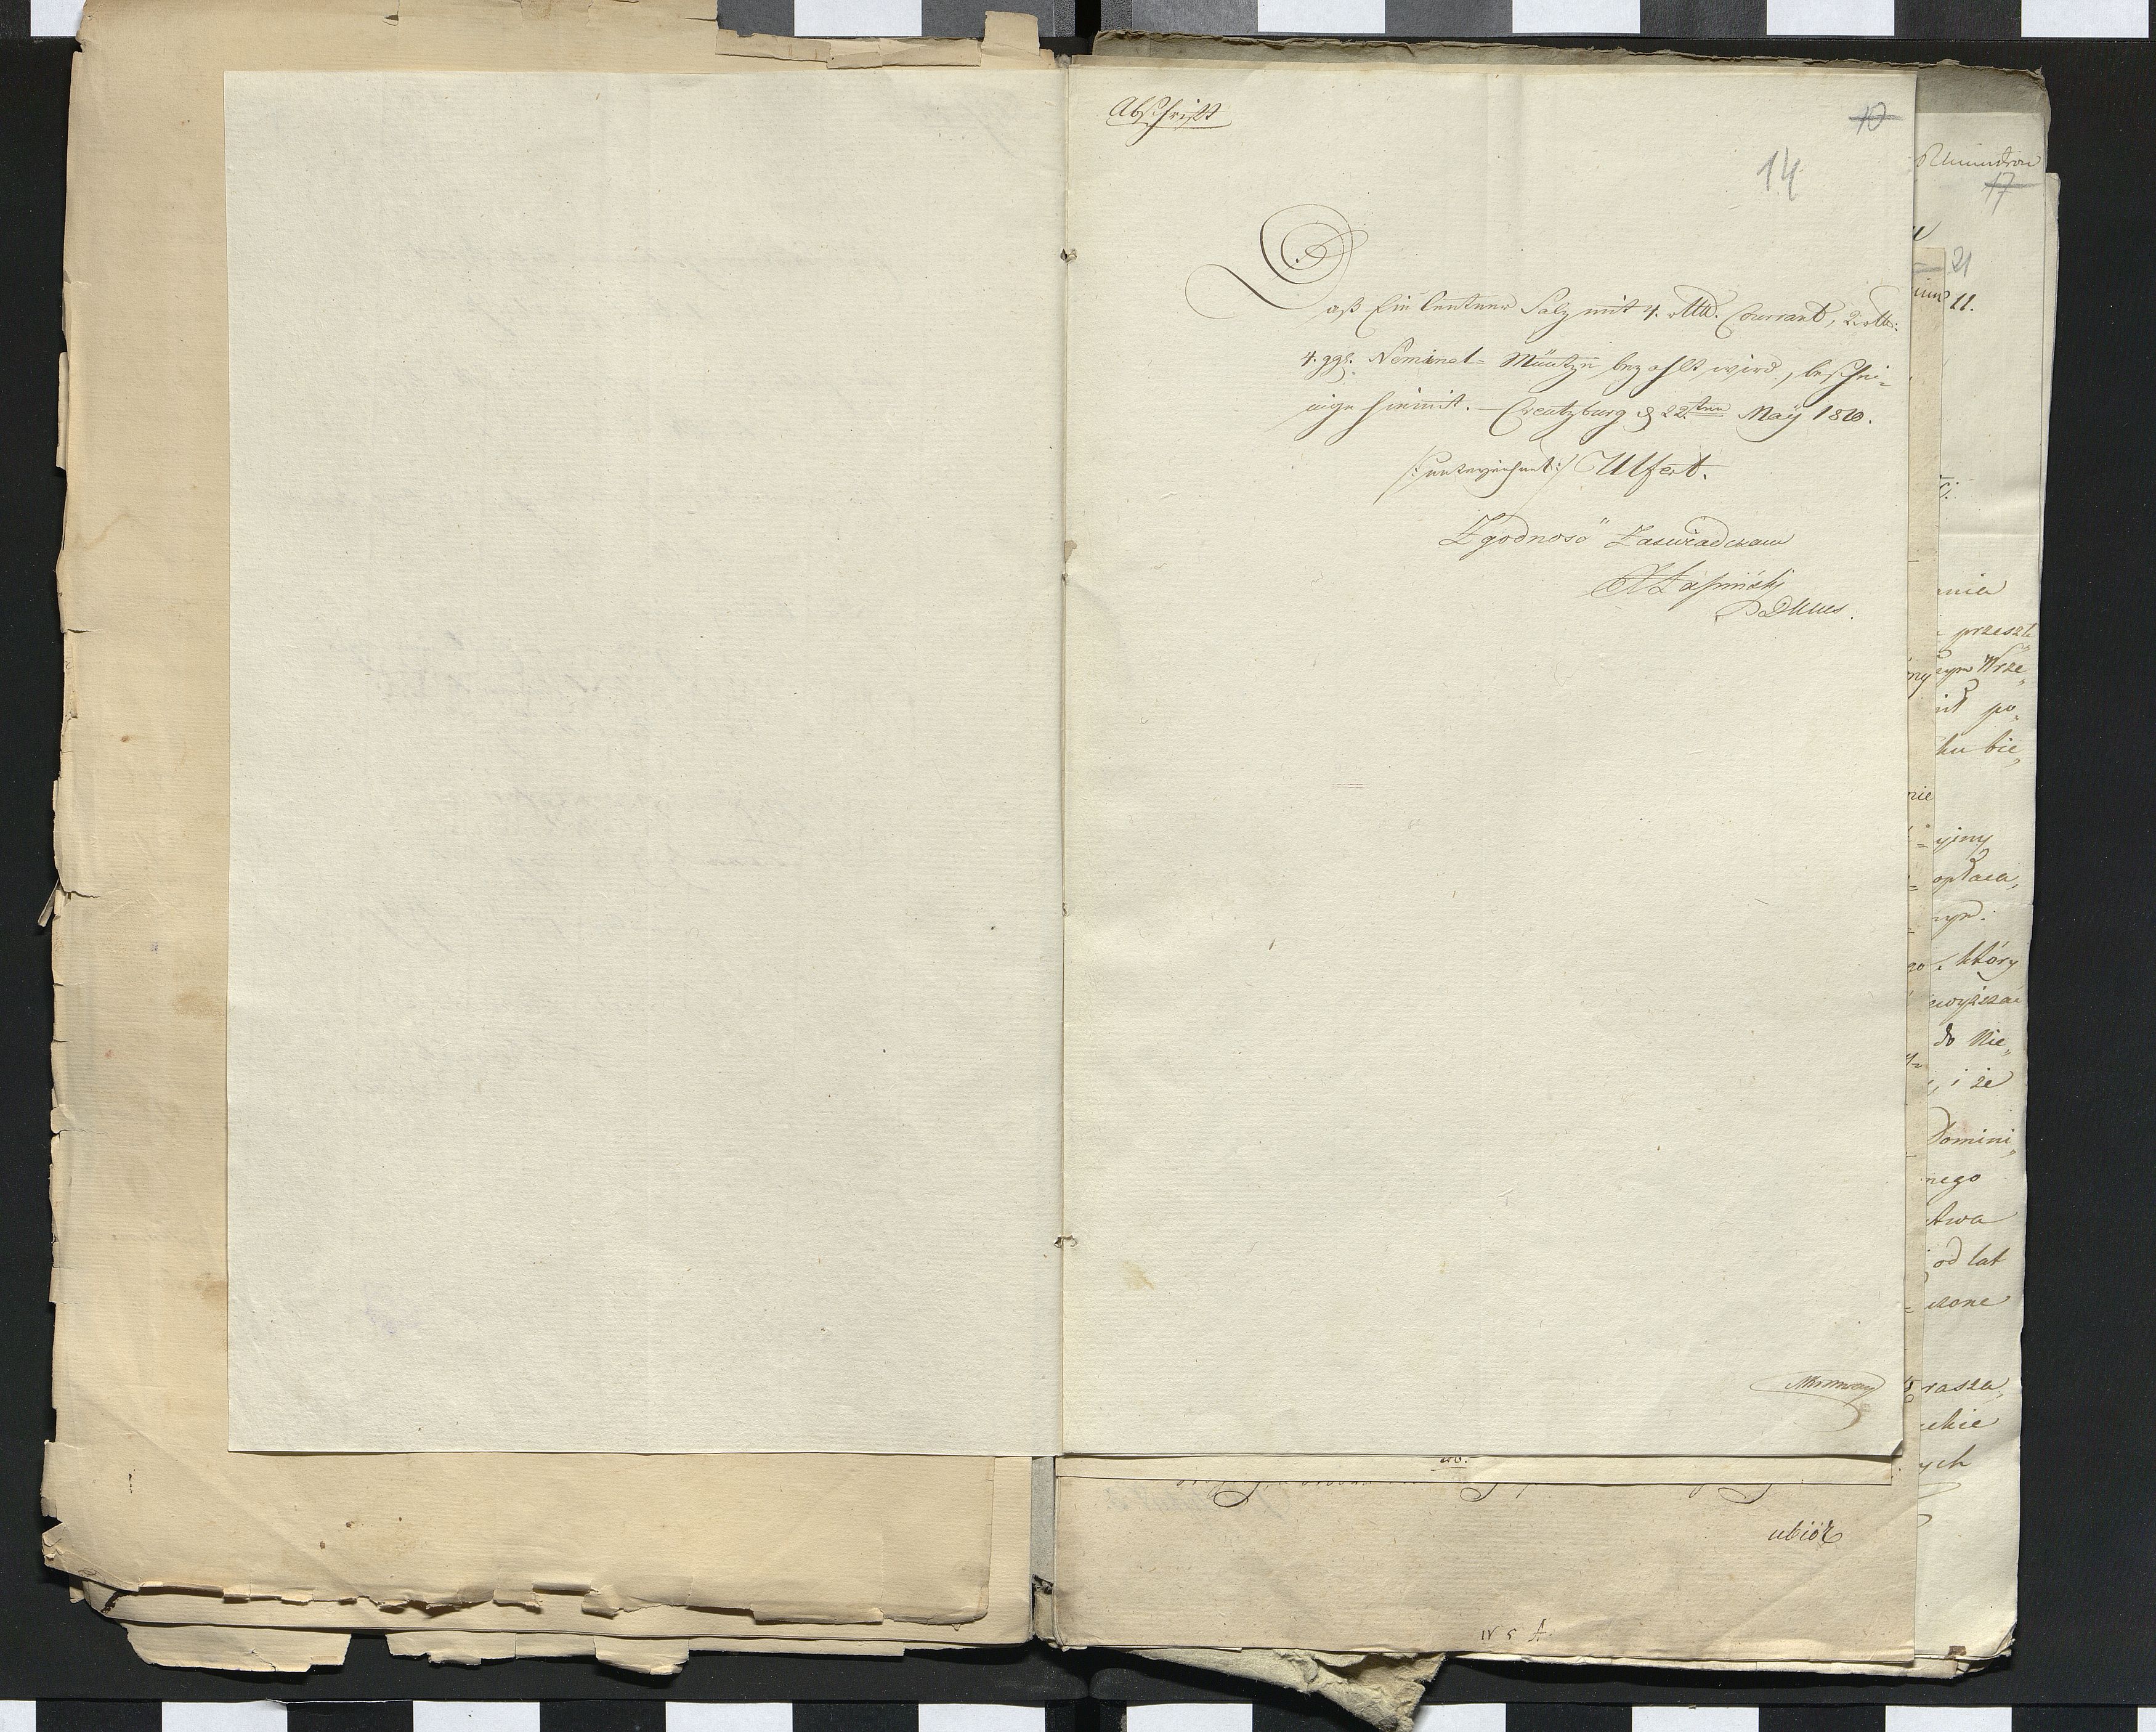 Abschrift
10
14
Daß Ein Centner Salz mit 4. rtlr. Courrant, 2 rtlr:
4. ggl. Nominal= Müntze bezahlt wird, beschei=
nige hiermit. Creutzburg d 22sten May 1810.
/: unterzeichnet :/ Ulfert.
Zgodność Zaświadczam
17
21
11.
nia
przeszła
zym Wrze„
po„
ku bie„
nie
yjny
opłaca„
nym.
który
do Nie„
i że
Domini„
nego
stwa
od lat
czone
rasza„
ych
ubiór
IV 5 A.